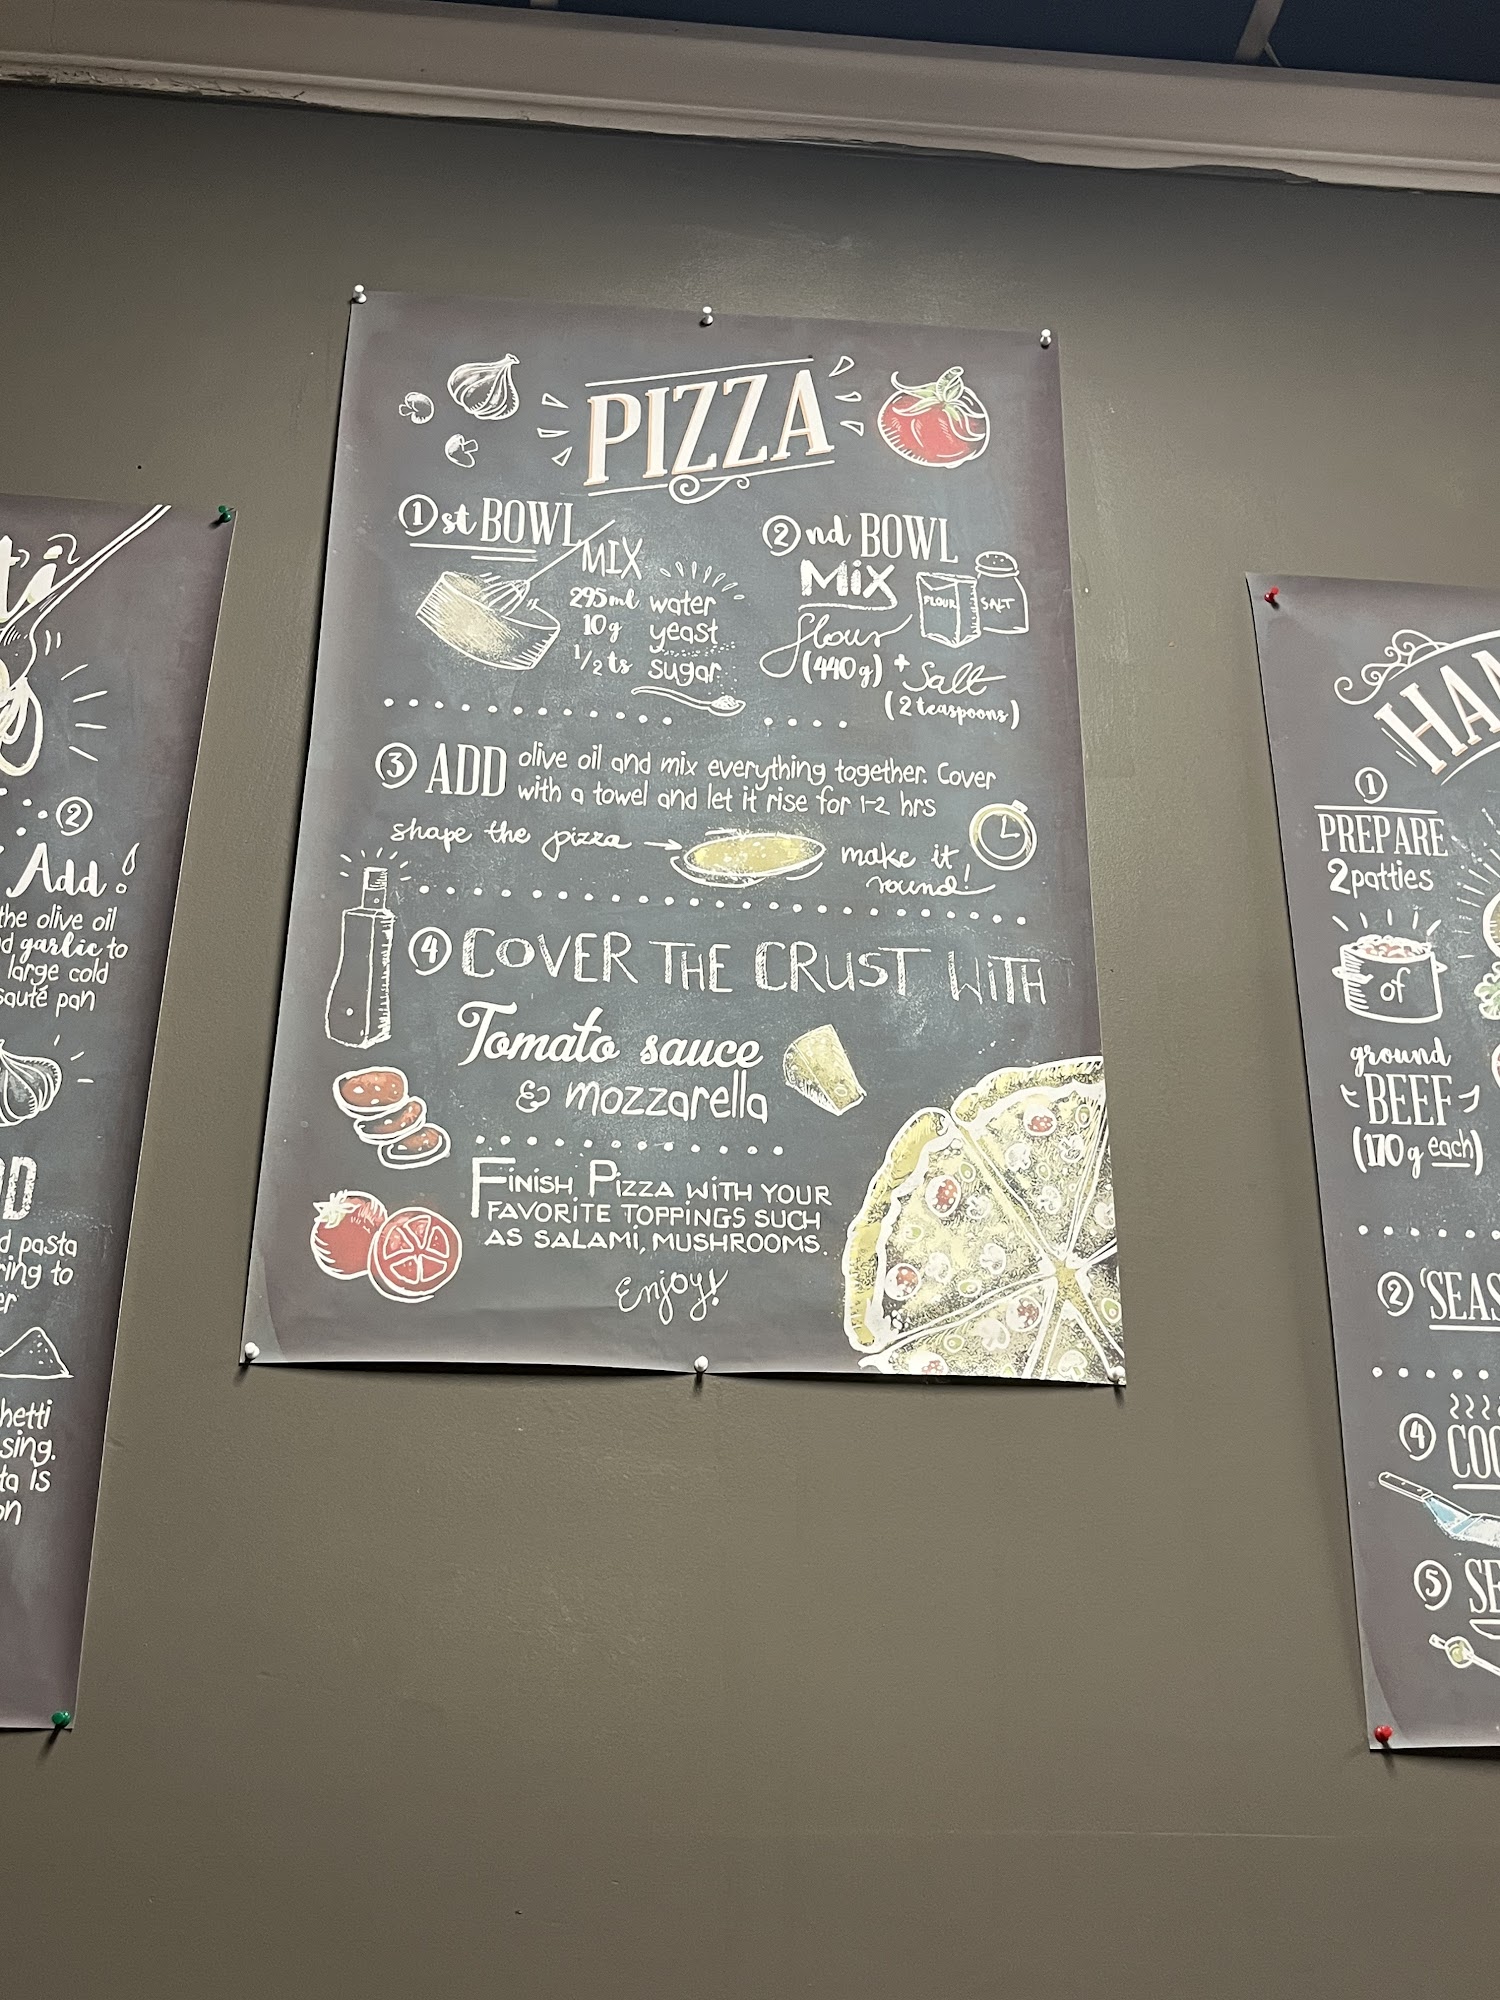 PIZZA
1st BOWL
MIX
295ml water
10g yeast
1/2 ts sugar
2nd BOWL
Mix
flour
(440g) + Salt
(2 teaspoons)
FLOUR
SALT
3 ADD olive oil and mix everything together. Cover
with a towel and let it rise for 1-2 hrs
shape the pizza → make it
round!
4 COVER THE CRUST WITH
Tomato sauce
& mozzarella
FINISH PIZZA WITH YOUR
FAVORITE TOPPINGS SUCH
AS SALAMI, MUSHROOMS.
Enjoy!
2
Add!
the olive oil
garlic to
large cold
pan
pasta
to
is
1
PREPARE
2 patties
of
ground
BEEF
(170g each)
2
4
5